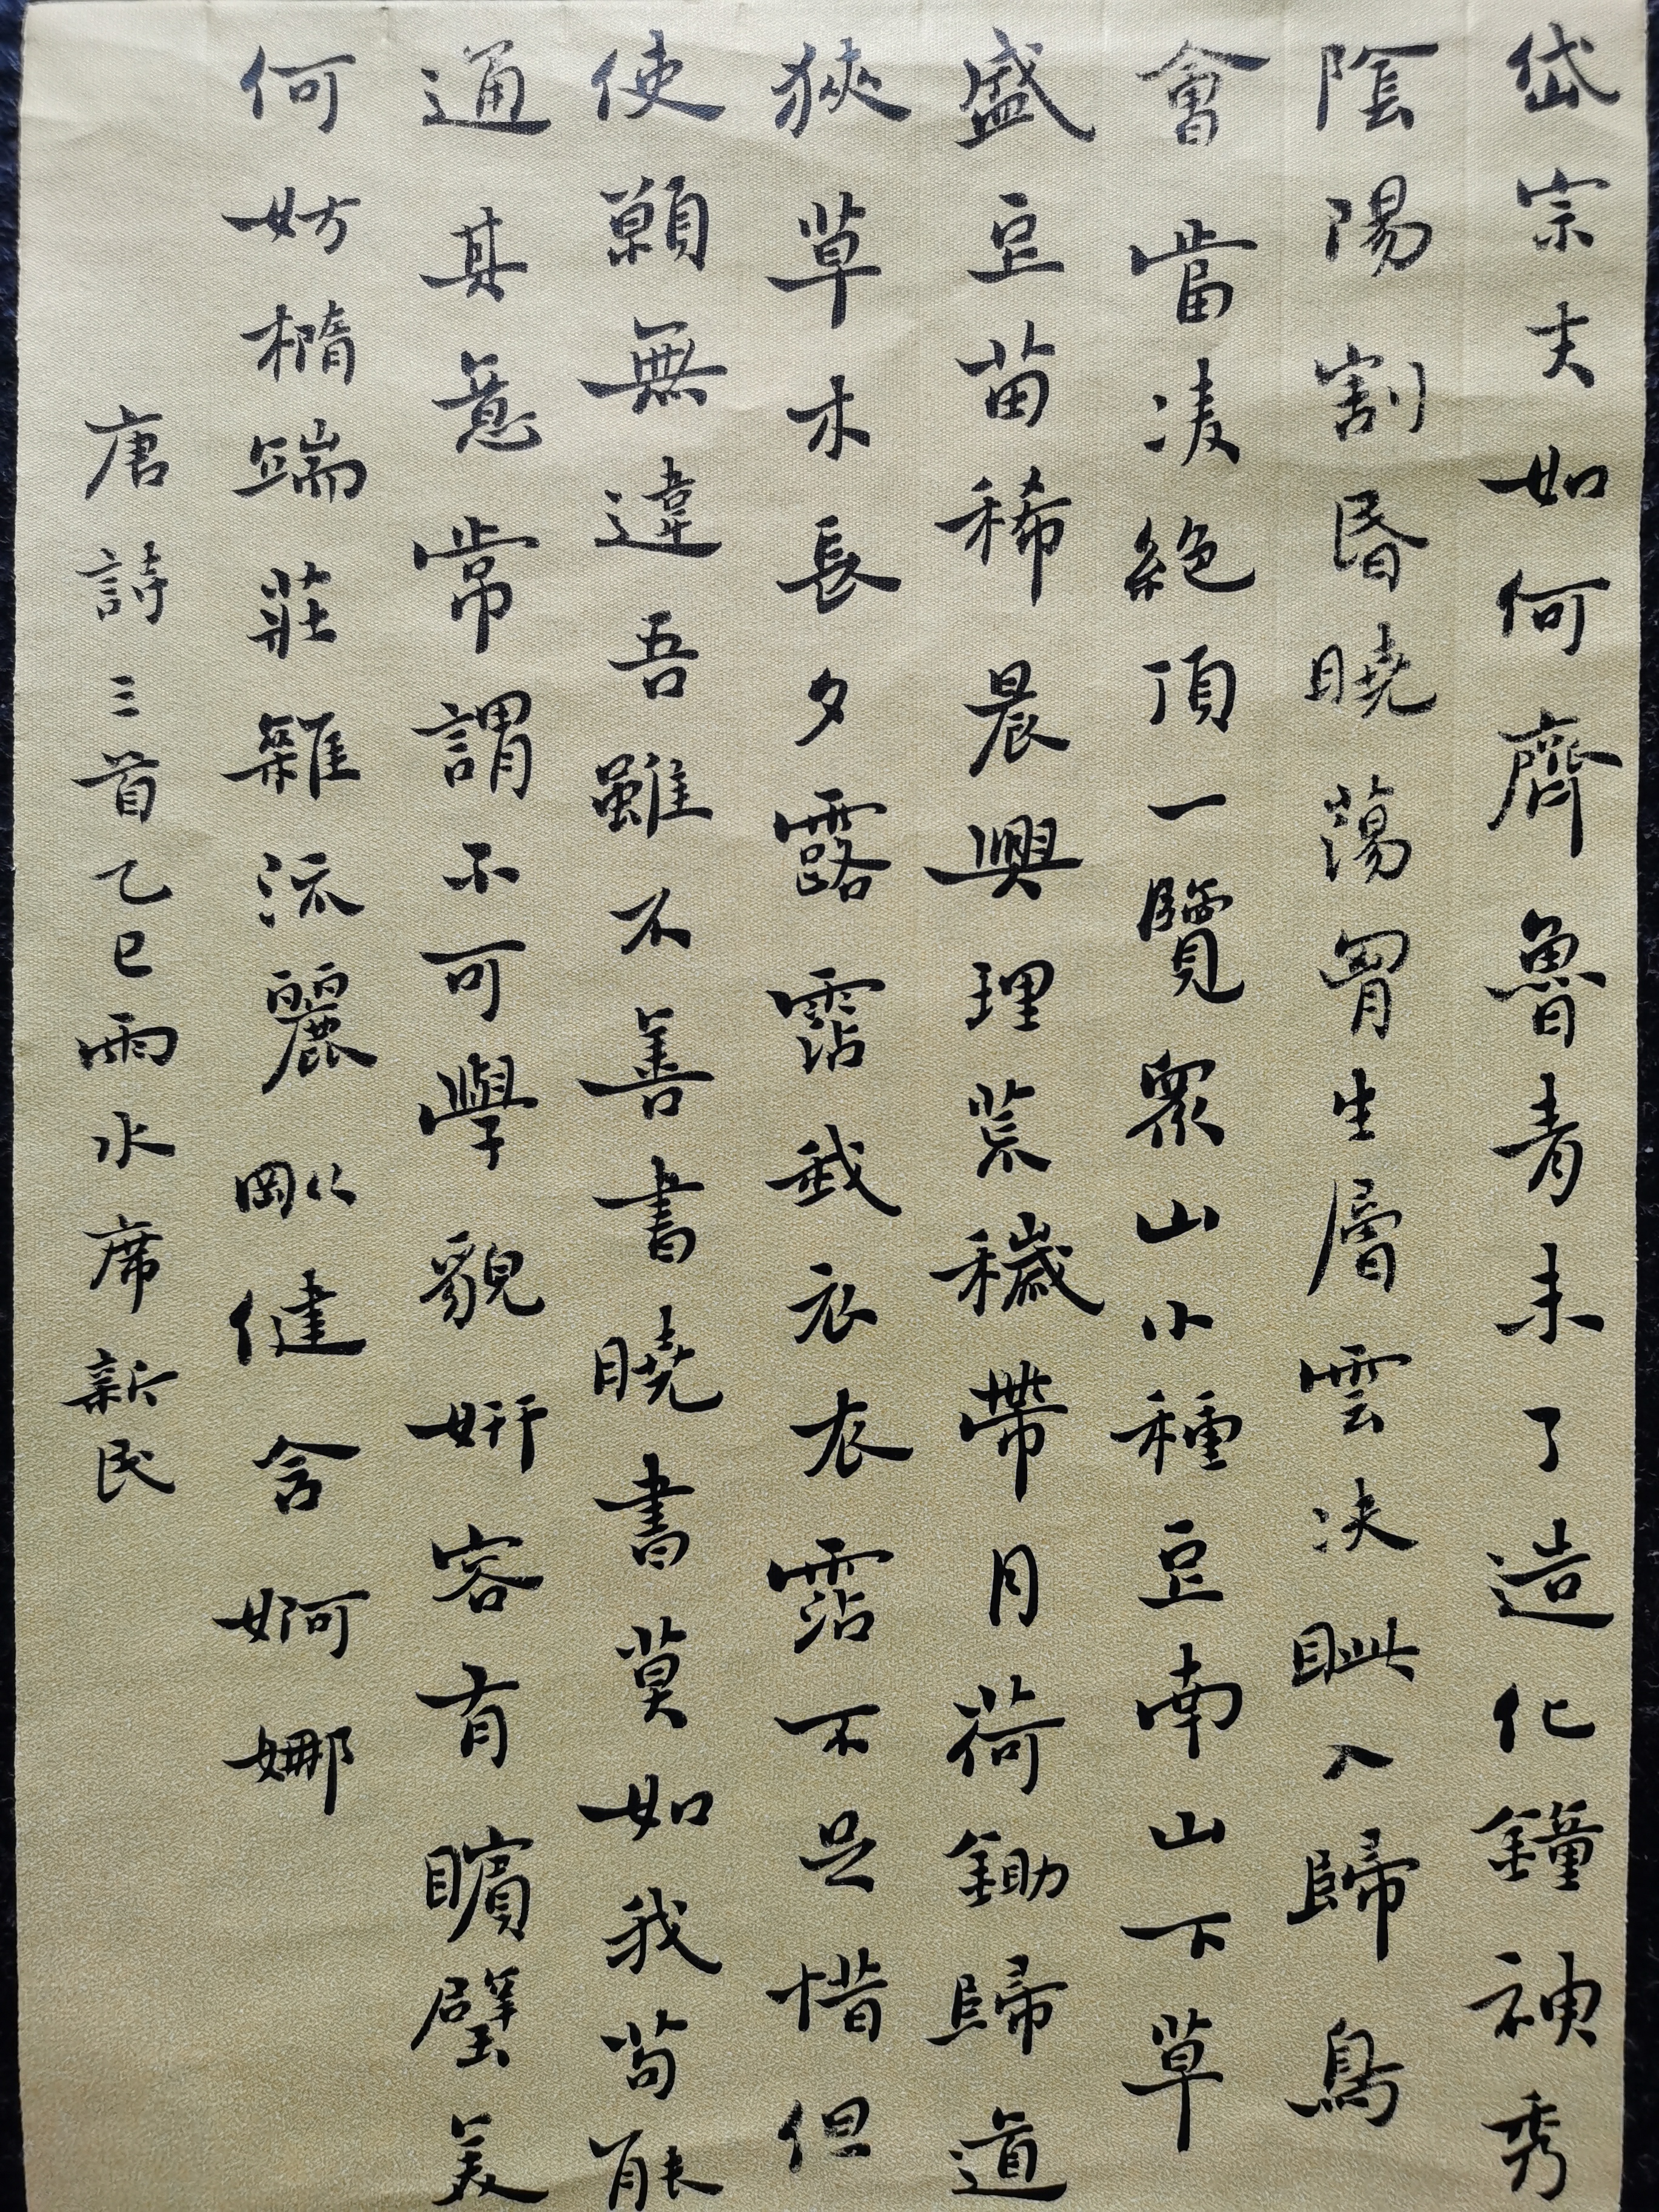 岱宗夫如何齊魯青未了造化鐘神秀
陰陽割昏曉蕩胷生層雲決眦入歸鳥
會當凌絕頂一覽眾山小種豆南山下草
盛豆苗稀晨興理荒穢帶月荷鋤歸道
狹草木長夕露霑我衣衣霑不足惜但
使願無違吾雖不善書曉書莫如我苟能
通其意常謂不可學貌妍容有矉璧美
何妨橢端莊雜流麗剛健含婀娜
唐詩三首乙巳雨水席新民